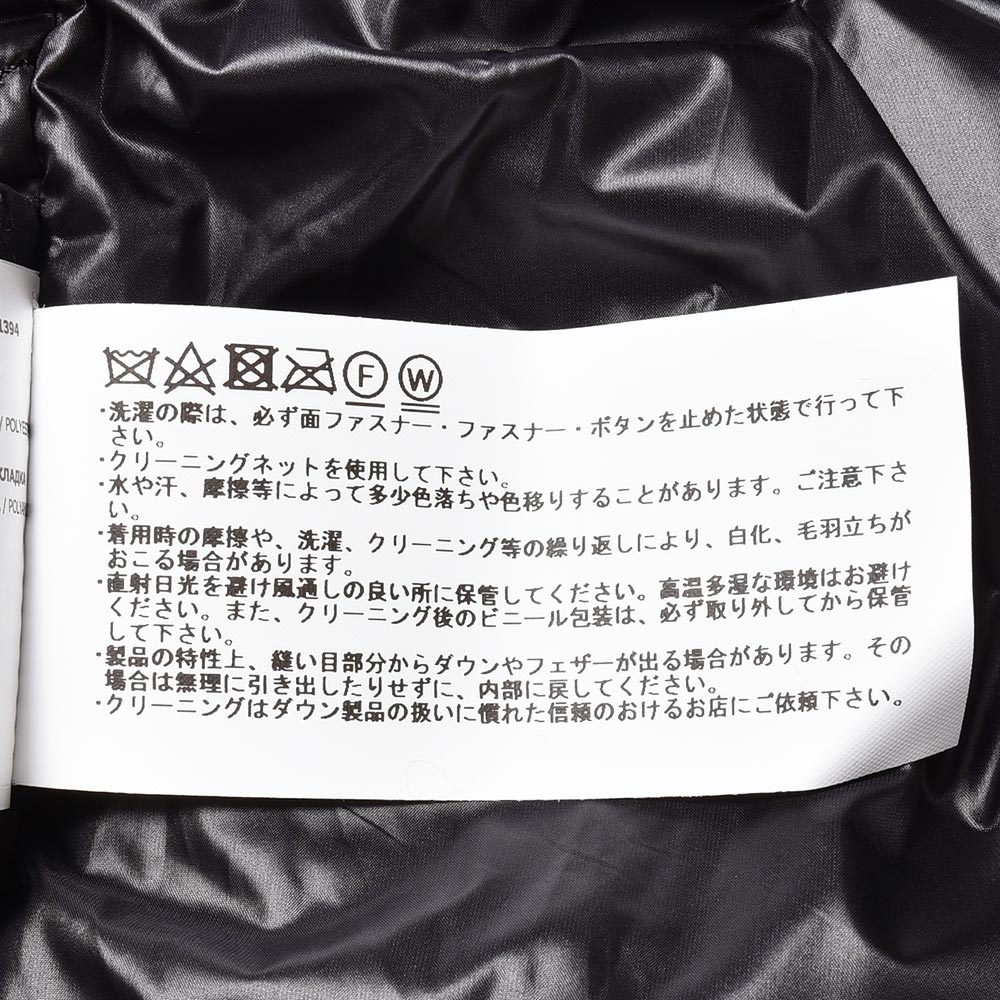 1394
/ POLYES
КЛАДКА
/ POLYA
F W
・洗濯の際は、必ず面ファスナー・ファスナー・ボタンを止めた状態で行って下
さい。
・クリーニングネットを使用して下さい。
・水や汗、摩擦等によって多少色落ちや色移りすることがあります。ご注意下さ
い。
・着用時の摩擦や、洗濯、クリーニング等の繰り返しにより、白化、毛羽立ちが
おこる場合があります。
・直射日光を避け風通しの良い所に保管してください。高温多湿な環境はお避け
ください。また、クリーニング後のビニール包装は、必ず取り外してから保管
して下さい。
・製品の特性上、縫い目部分からダウンやフェザーが出る場合があります。その
場合は無理に引き出したりせずに、内部に戻してください。
・クリーニングはダウン製品の扱いに慣れた信頼のおけるお店にご依頼下さい。